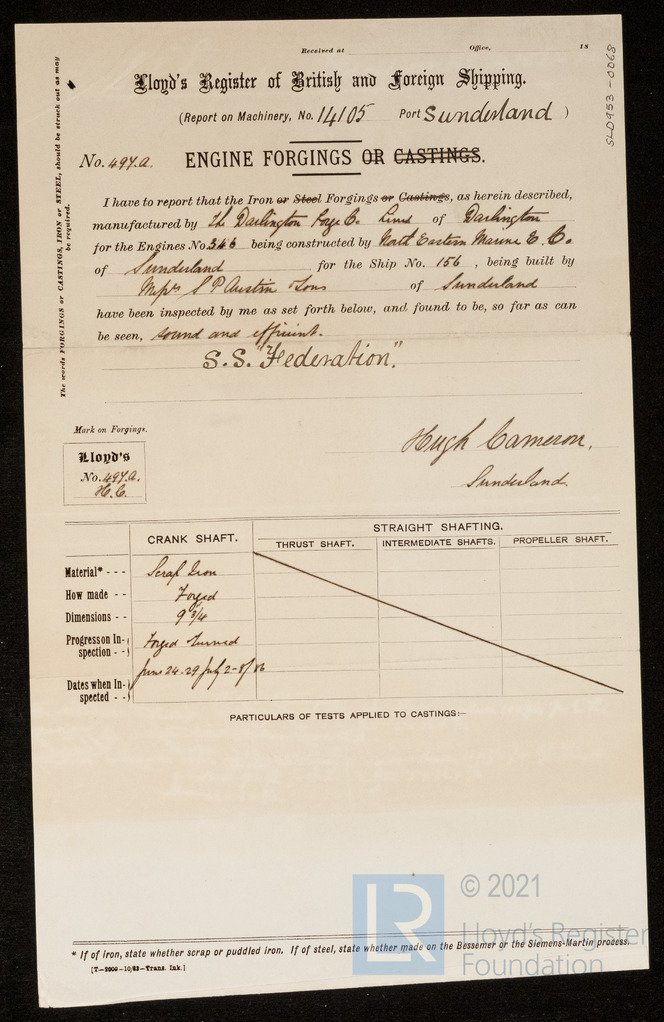 Received at Office, 18
SLD953-0068
Lloyd's Register of British and Foreign Shipping.
(Report on Machinery, No. 14105 Port Sunderland )
The words FORGINGS or CASTINGS, IRON or STEEL, should be struck out as may be required.
No. 497.A. ENGINE FORGINGS OR CASTINGS.
I have to report that the Iron or Steel Forgings or Castings, as herein described,
manufactured by The Darlington Forge Co. Limd of Darlington
for the Engines No. 546 being constructed by North Eastern Marine E. Co.
of Sunderland for the Ship No. 156, being built by
Messrs S P Austin & Sons of Sunderland
have been inspected by me as set forth below, and found to be, so far as can
be seen, sound and efficient.
S.S. "Federation".
Mark on Forgings.
Lloyd's
No. 497.A.
H.C.
Hugh Cameron.
Sunderland.
CRANK SHAFT. STRAIGHT SHAFTING.
THRUST SHAFT. INTERMEDIATE SHAFTS. PROPELLER SHAFT.
Material* - - - Scrap Iron
How made - - Forged
Dimensions - - 9 3/4
Progress on In-
spection - - Forged Turned
Dates when In-
spected - - June 24-29 July 2-8/86
PARTICULARS OF TESTS APPLIED TO CASTINGS:-
* If of iron, state whether scrap or puddled iron. If of steel, state whether made on the Bessemer or the Siemens-Martin process.
[T-2009-10/83-Trans. Ink.]
LR © 2021
Lloyd's Register
Foundation